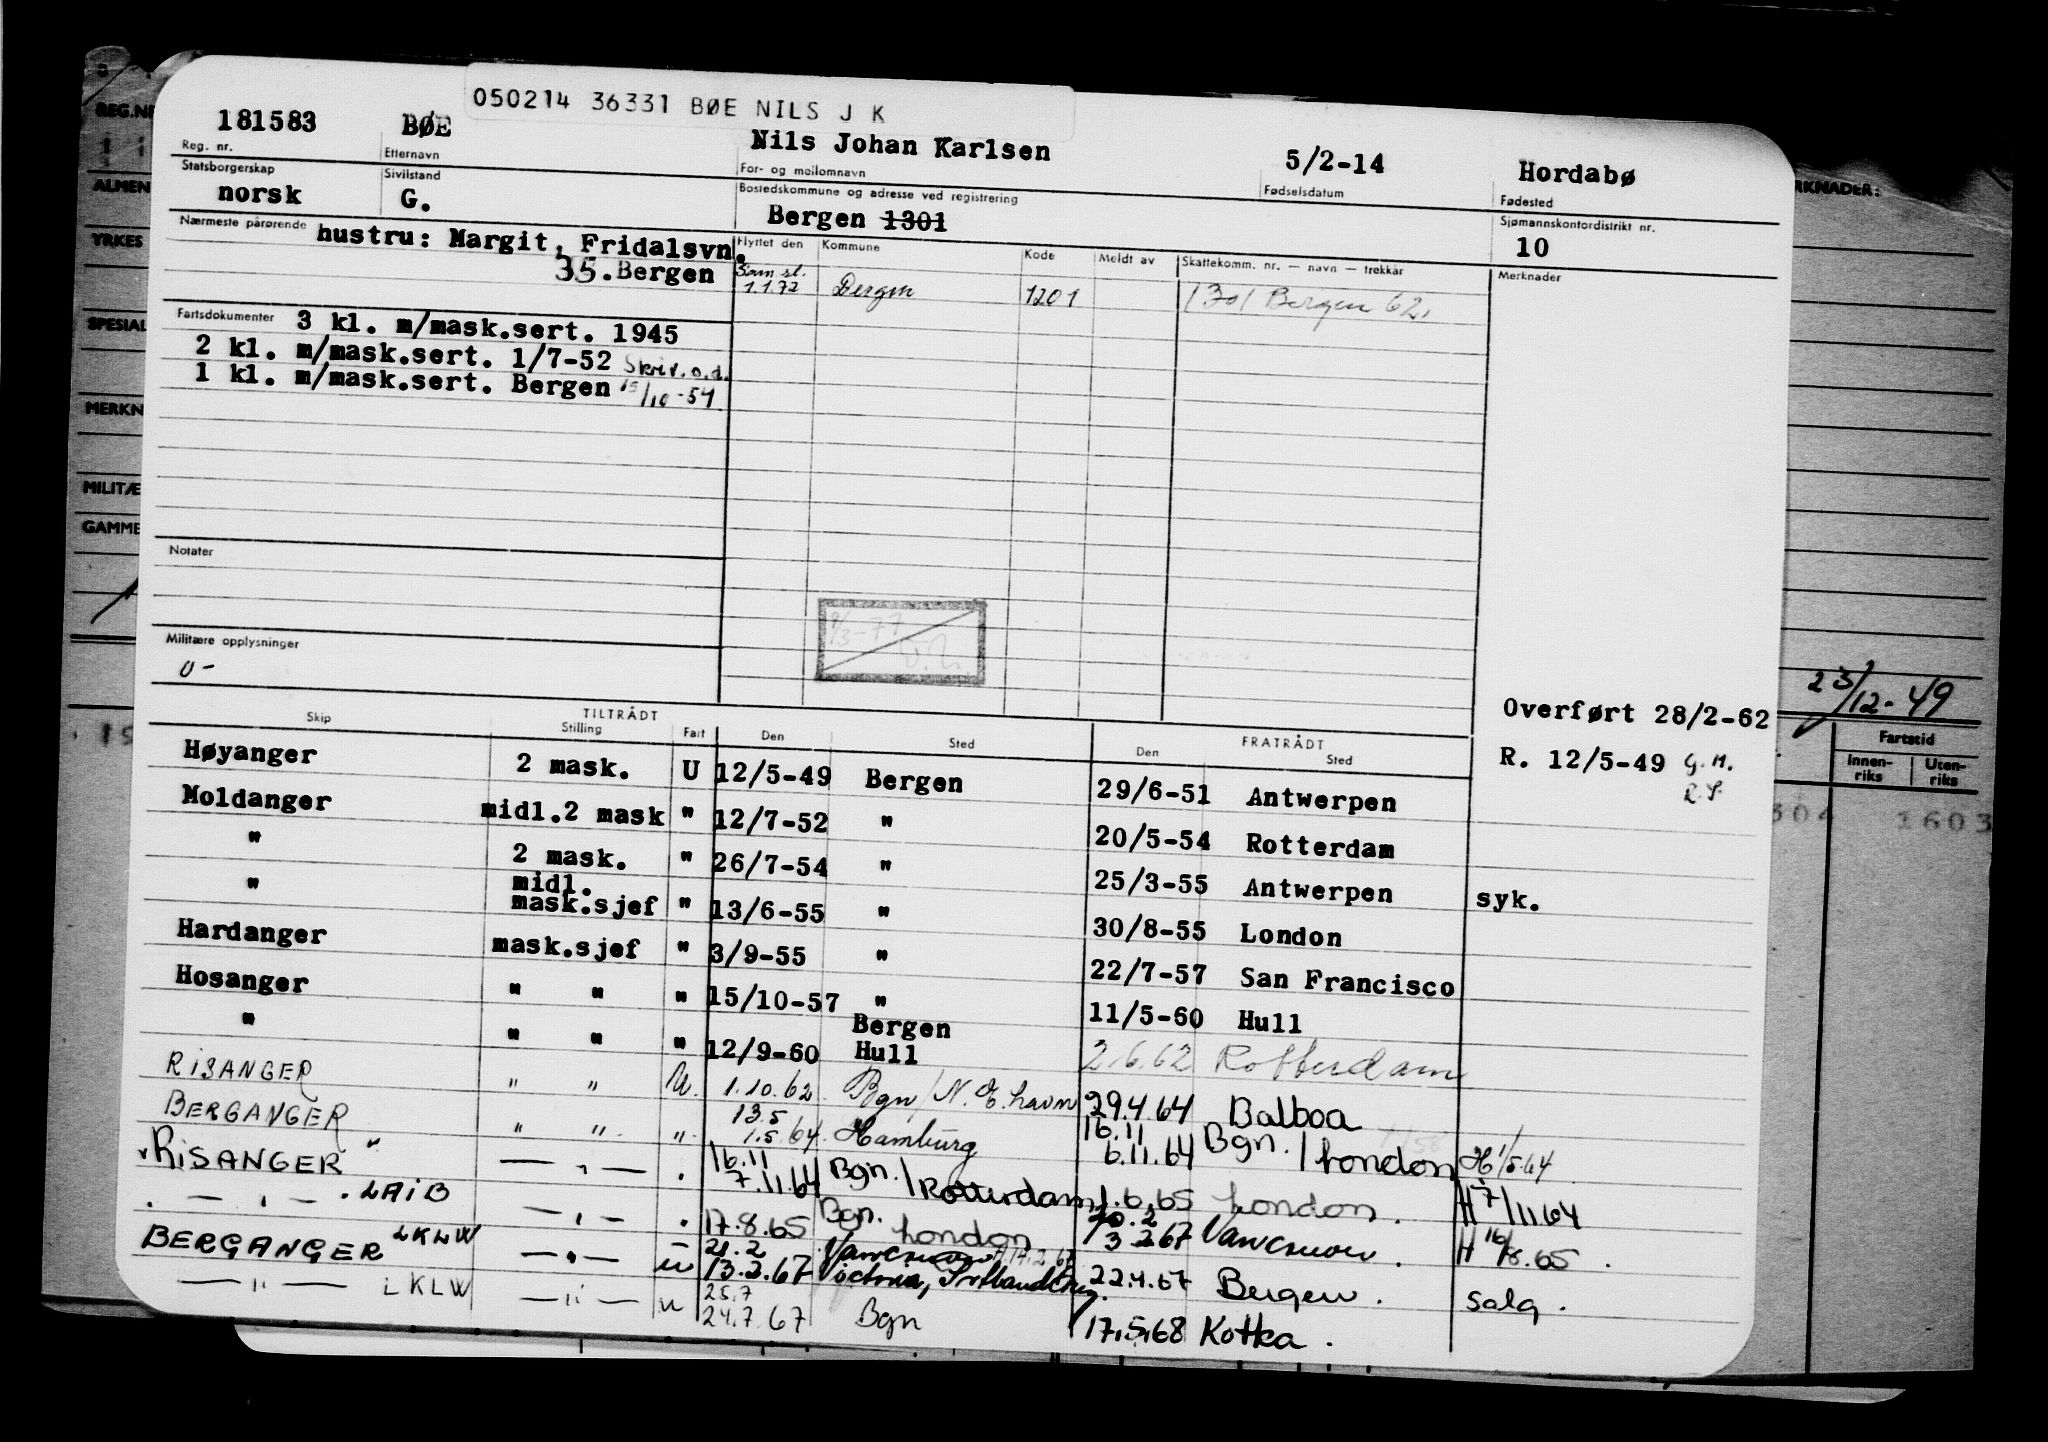 050214 36331 BØE NILS J K
181583 BØE Nils Johan Karlsen 5/2-14 Hordabø
Reg. nr. Etternavn For- og mellomnavn Fødselsdatum Fødested
Statsborgerskap Sivilstand Bostedskommune og adresse ved registrering Sjømannskontordistrikt nr.
norsk G. Bergen 1301 10
Nærmeste pårørende hustru: Margit, Fridalsvn.
35. Bergen
Flyttet den Kommune Kode Meldt av Skattekomm. nr. — navn — trekkår Merknader
Sam.sl.
1.1.72 Bergen 1201 1301 Bergen 62.
Fartsdokumenter 3 kl. m/mask.sert. 1945
2 kl. m/mask.sert. 1/7-52 Skriv. o.d.
1 kl. m/mask.sert. Bergen 15/10-54
Notater
Militære opplysninger
U-
Overført 28/2-62
R. 12/5-49 G.M.
TILTRÅDT FRATRÅDT
Skip Stilling Fart Den Sted Den Sted
Høyanger 2 mask. U 12/5-49 Bergen 29/6-51 Antwerpen
Moldanger midl.2 mask " 12/7-52 " 20/5-54 Rotterdam
" 2 mask. " 26/7-54 " 25/3-55 Antwerpen syk.
" midl.
mask.sjef " 13/6-55 " 30/8-55 London
Hardanger mask.sjef " 3/9-55 " 22/7-57 San Francisco
Hosanger " " " 15/10-57 " 11/5-60 Hull
" " " " 12/9-60 Bergen
Hull 2.6.62 Rotterdam
RISANGER " " U. 1.10.62 Bgn/N.E.havn 29.4.64 Balboa
BERGANGER " " " 13.5
1.5.64 Hamburg 16.11
6.11.64 Bgn./London H 1/5.64
RISANGER " — " — . 16.11
7.11.64 Bgn./Rotterdam 1.6.65 London. H 7/11 64
. — " — . LAIB — " — . 17.8.65 Bgn. London 20.2
3.2.67 Vancouver. H 16/8.65.
BERGANGER LKLW — " — u 21.2
13.2.67 Vancouver H 17.2.67
Victoria, 22.4.67 Bergen. salg.
— " — LKLW — " — u 25.7
24.7.67 Bgn 17.5.68 Kotka.
REG.NR
ALMEN
YRKES
SPESIAL
MERKN
MILITÆ
GAMME
RKNADER:
23/12-49
Fartstid
Innen-
riks Uten-
riks
304 1603